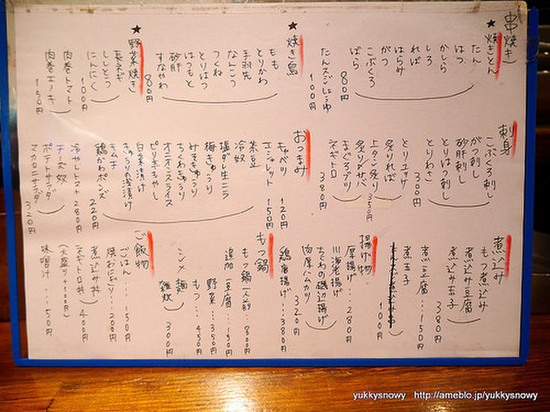 串焼き
★焼きとん
たん
はつ
かしら
しろ
はらみ
がつ
こぶくろ
ばら
80円
たんスジはらゆ
100円
★焼き鳥
もも
とりかわ
なんこつ
つくね
手羽先
とりはつ
はつもと
砂肝
すなやわ
80円
★野菜焼き
長ネギ
ししとう
にんにく
100円
肉巻トマト
肉巻エノキ
150円
刺身
こぶくろ刺し
がつ刺し
砂肝刺し
とりはつ刺し
とりわさ
300円
とりユッケ
炙りればー
上タン炙り
炙りシメサバ
350円
まぐろブツ
ネギトロ
380円
おつまみ
キャベツ
120円
エシャレット
150円
茶豆
冷奴
塩ダレ生ニラ
梅きゅうり
みそきゅうり
ちくわきゅうり
オニオンスライス
ピリ辛もやし
白菜漬け
きゅうり浅漬け
キムチ
鶏かわポンズ
220円
冷やしトマト
280円
チーズ奴
ポテトサラダ
マカロニサラダ
320円
煮込み
もつ煮込み
煮込み豆腐
煮込み玉子
380円
煮込豆腐
150円
煮玉子
100円
揚げ物
厚揚げ
280円
川海老揚げ
ちくわの磯辺揚げ
肉厚ハムカツ
320円
鶏唐揚げ
350円
もつ鍋
もつ鍋一人前
800円
追加
豆腐…150円
野菜…350円
もつ…450円
〆
麺
雑炊
300円
ご飯物
ごはん…150円
焼おにぎり…200円
煮込み丼
ネギトロ丼
400円
(大盛り+100円)
味噌汁…150円
yukkysnowy http://ameblo.jp/yukkysnowy